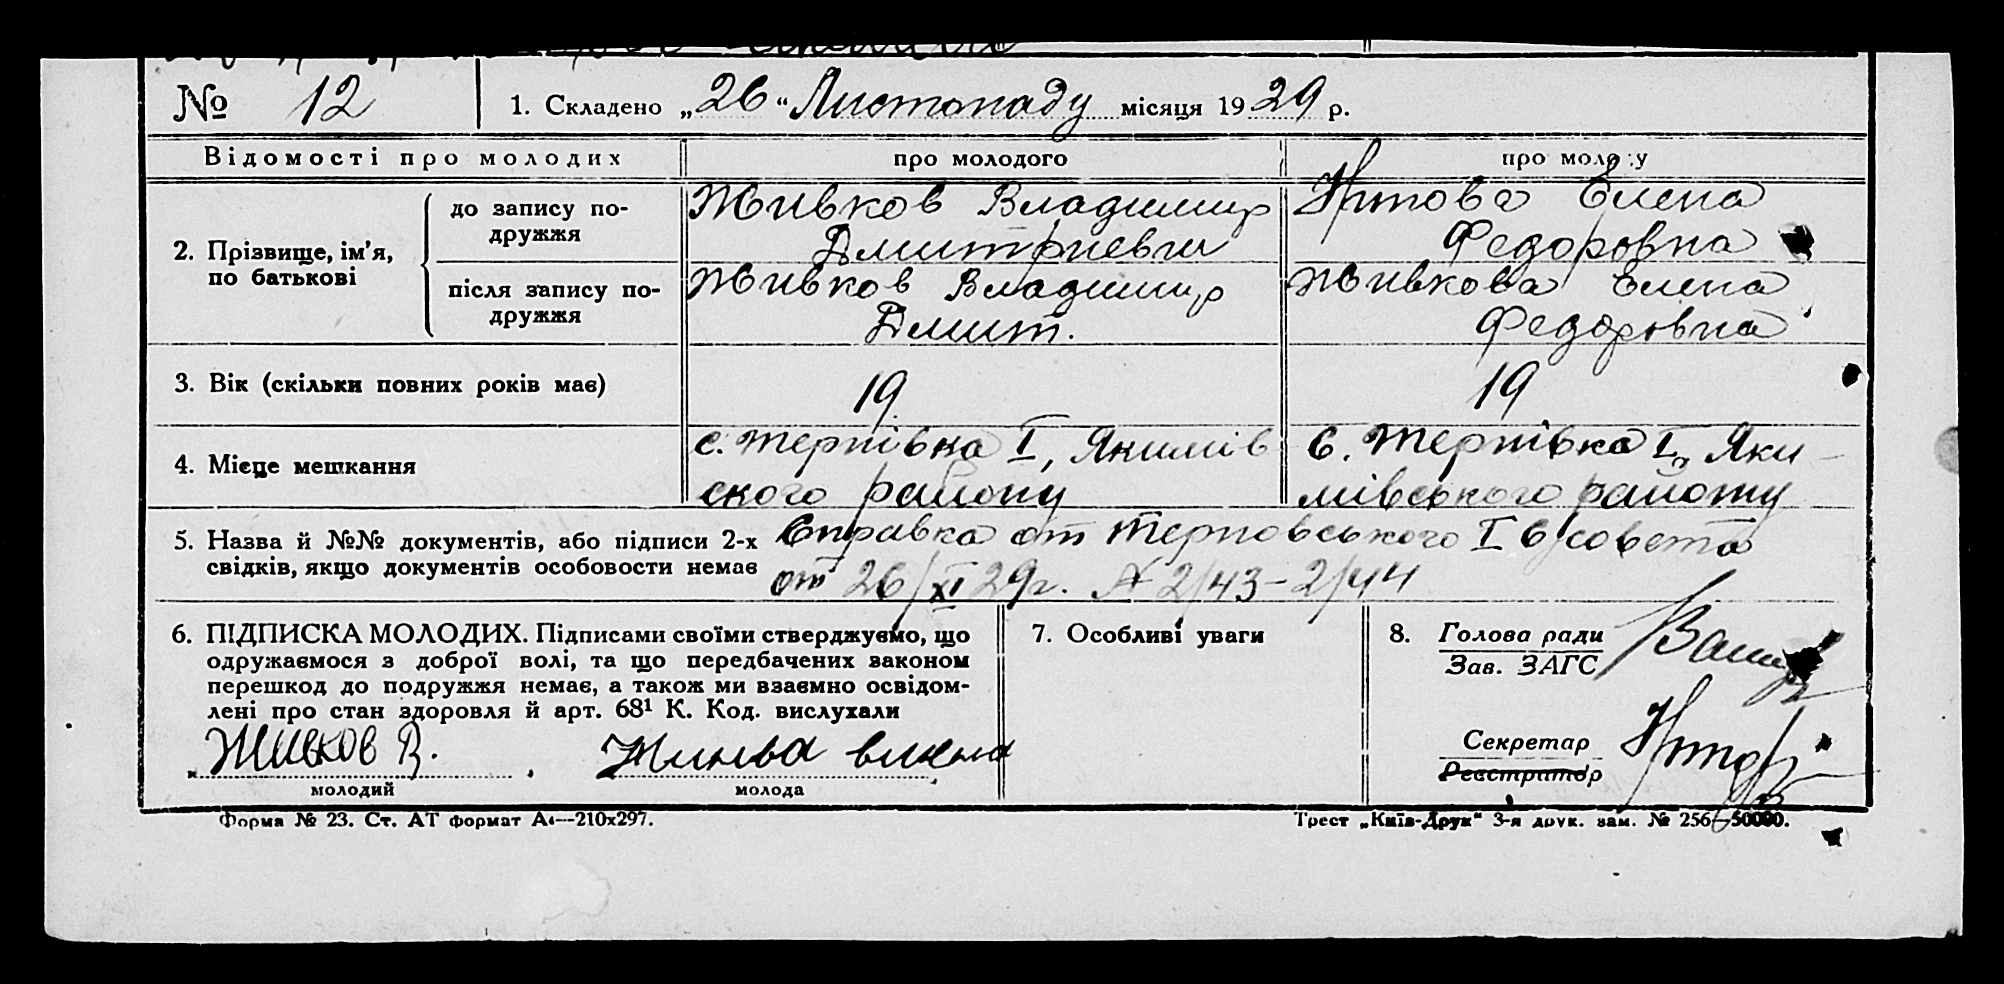 № 12 1. Складено „26" Листопаду місяця 1929 р.
Відомості про молодих про молодого про молоду
2. Прізвище, ім'я, по батькові
до запису по-
дружжя
Живков Владимир
Дмитриевич
Федоровна
Елена
після запису по-
дружжя
Живков Владимир
Дмит.
Живкова Елена
Федоровна
3. Вік (скільки повних років має) 19 19
4. Місце мешкання
с. Терпівка I, Якимів
ского району
с. Терпівка I, Яки-
мівського району
5. Назва й №№ документів, або підписи 2-х
свідків, якщо документів особовости немає
Справка от Терповського I с/совета
от 26/XI 29г. № 2/43-2/44
6. ПІДПИСКА МОЛОДИХ. Підписами своїми стверджуємо, що
одружаємося з доброї волі, та що передбачених законом
перешкод до подружжя немає, а також ми взаємно освідом-
лені про стан здоровля й арт. 68¹ К. Код. вислухали
Живков В.
молодий
молода
7. Особливі уваги
8. Голова ради
Зав. ЗАГС
Секретар
Реєстратор
Форма № 23. Ст. АТ формат А4—210х297.
Трест „Київ-Друк" 3-я друк. зам. № 256—50000.